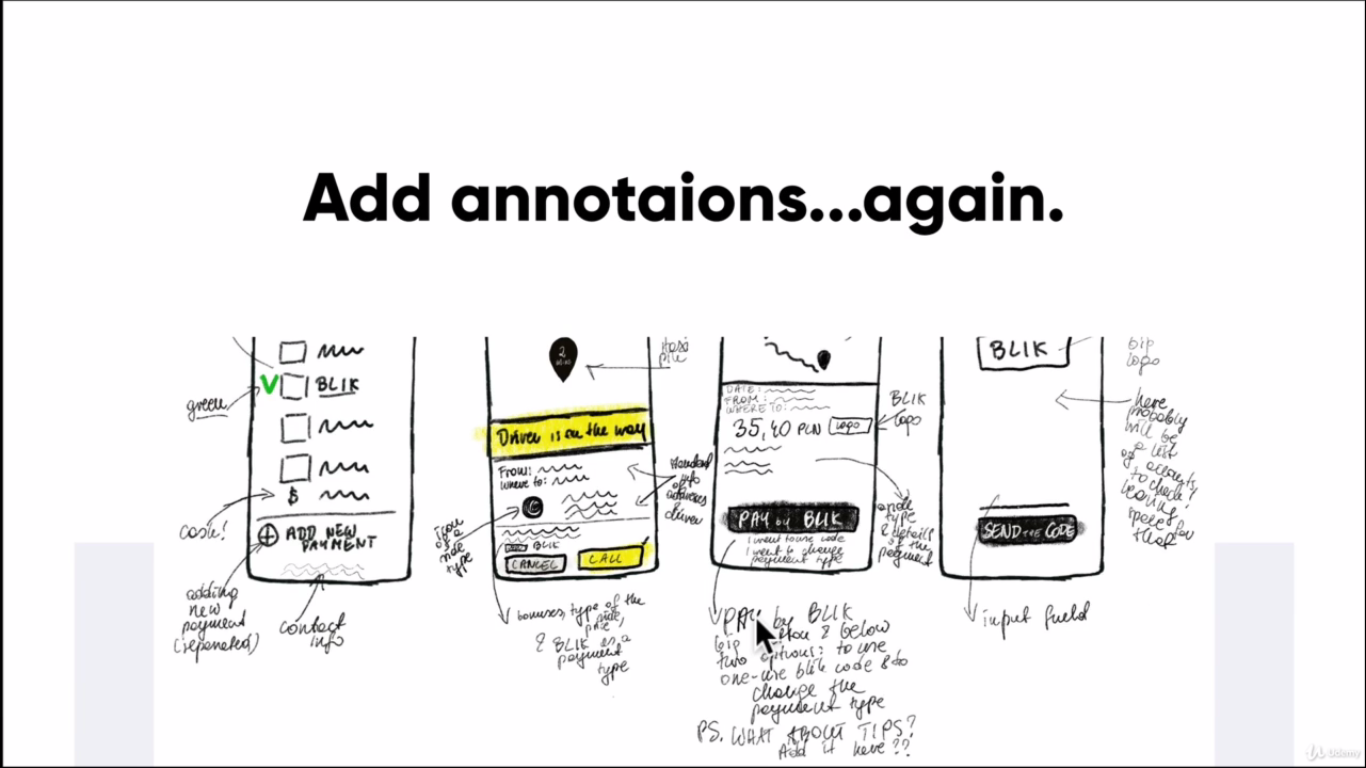 Add annotaions...again.
BLIK
green
cash!
$
ADD NEW
PAYMENT
adding
new
payment
(separated)
contact
info
2
Driver is on the way
From:
Where to:
C
BLIK
CANCEL
CALL
icon
of a
ride
type
bonuses, type of the
ride,
price,
& BLIK as a
payment
type
DATE:
FROM:
WHERE TO:
35,40 PLN LOGO
BLIK
logo
PAY by BLIK
I want to use code
I want to change
payment type
ride
type
& details
of the
payment
PAY by BLIK
big & below
two options: to use
one-use blik code & to
change the
payment type
PS. WHAT ABOUT TIPS?
Add it here??
BLIK
big
logo
here
probably
will be
a list
of accounts
to check!
leaving
space for
that
SEND THE CODE
input field
Udemy